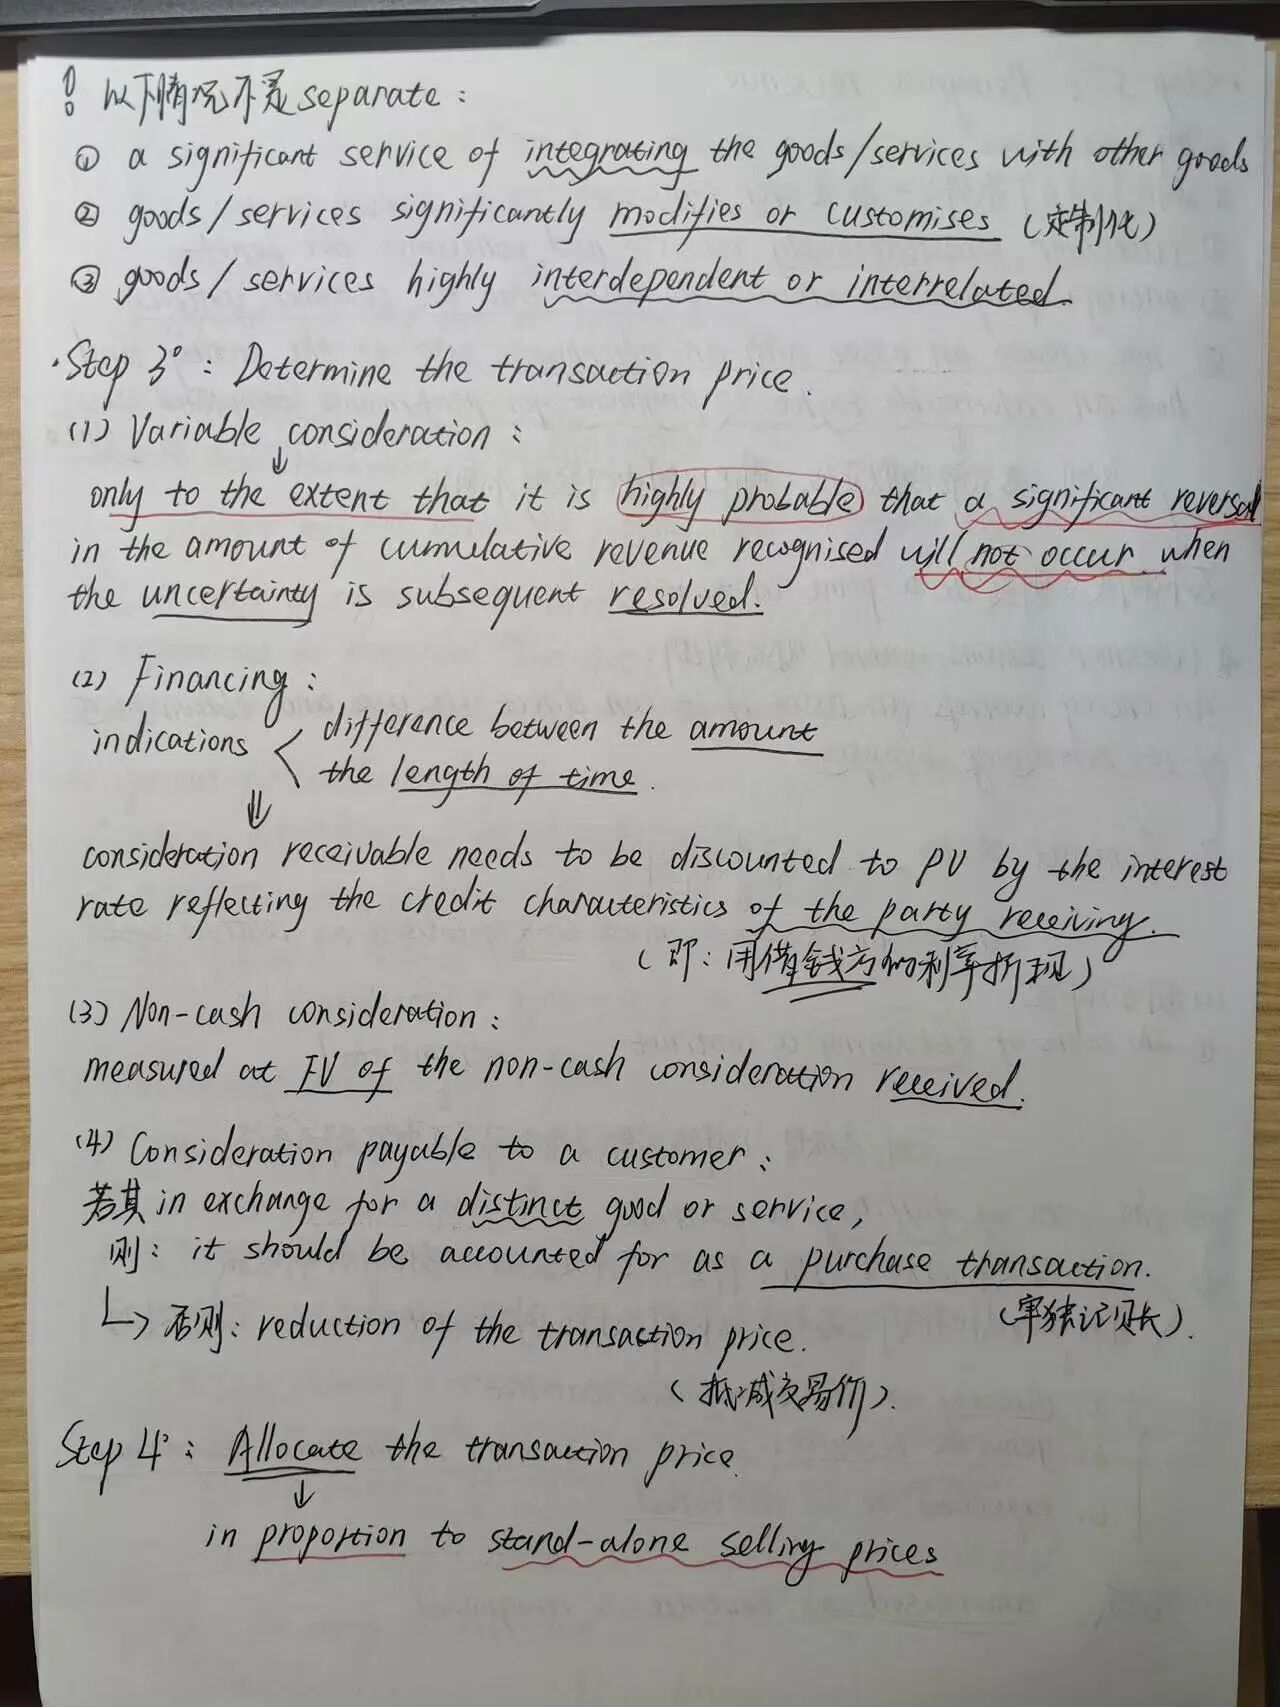 ! 以下情况不是separate:
① a significant service of integrating the goods/services with other goods
② goods/services significantly modifies or customises (定制化)
③ goods/services highly interdependent or interrelated.
·Step 3°: Determine the transaction price.
(1) Variable consideration:
↓
only to the extent that it is highly probable that a significant reversal
in the amount of cumulative revenue recognised will not occur when
the uncertainty is subsequent resolved.
(2) Financing:
indications < difference between the amount
the length of time.
⇓
consideration receivable needs to be discounted to PV by the interest
rate reflecting the credit characteristics of the party receiving.
(即:用借钱方的利率折现)
(3) Non-cash consideration:
measured at FV of the non-cash consideration received.
(4) Consideration payable to a customer:
若其in exchange for a distinct good or service,
则: it should be accounted for as a purchase transaction.
(单独记账).
↳ 否则: reduction of the transaction price.
(抵减交易价).
Step 4°: Allocate the transaction price.
↓
in proportion to stand-alone selling prices